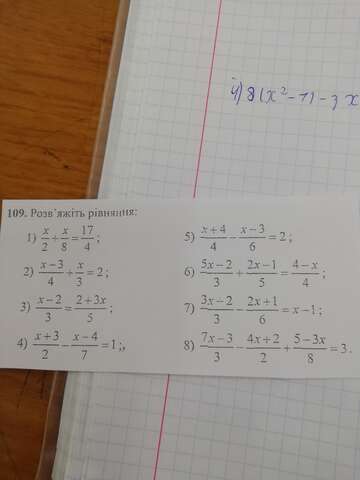 4) 8(x² - 1) - 3x
109. Розв'яжіть рівняння:
1) x/2 + x/8 = 17/4;
2) (x-3)/4 + x/3 = 2;
3) (x-2)/3 = (2+3x)/5;
4) (x+3)/2 - (x-4)/7 = 1;,
5) (x+4)/4 - (x-3)/6 = 2;
6) (5x-2)/3 + (2x-1)/5 = (4-x)/4;
7) (3x-2)/3 - (2x+1)/6 = x-1;
8) (7x-3)/3 - (4x+2)/2 + (5-3x)/8 = 3.